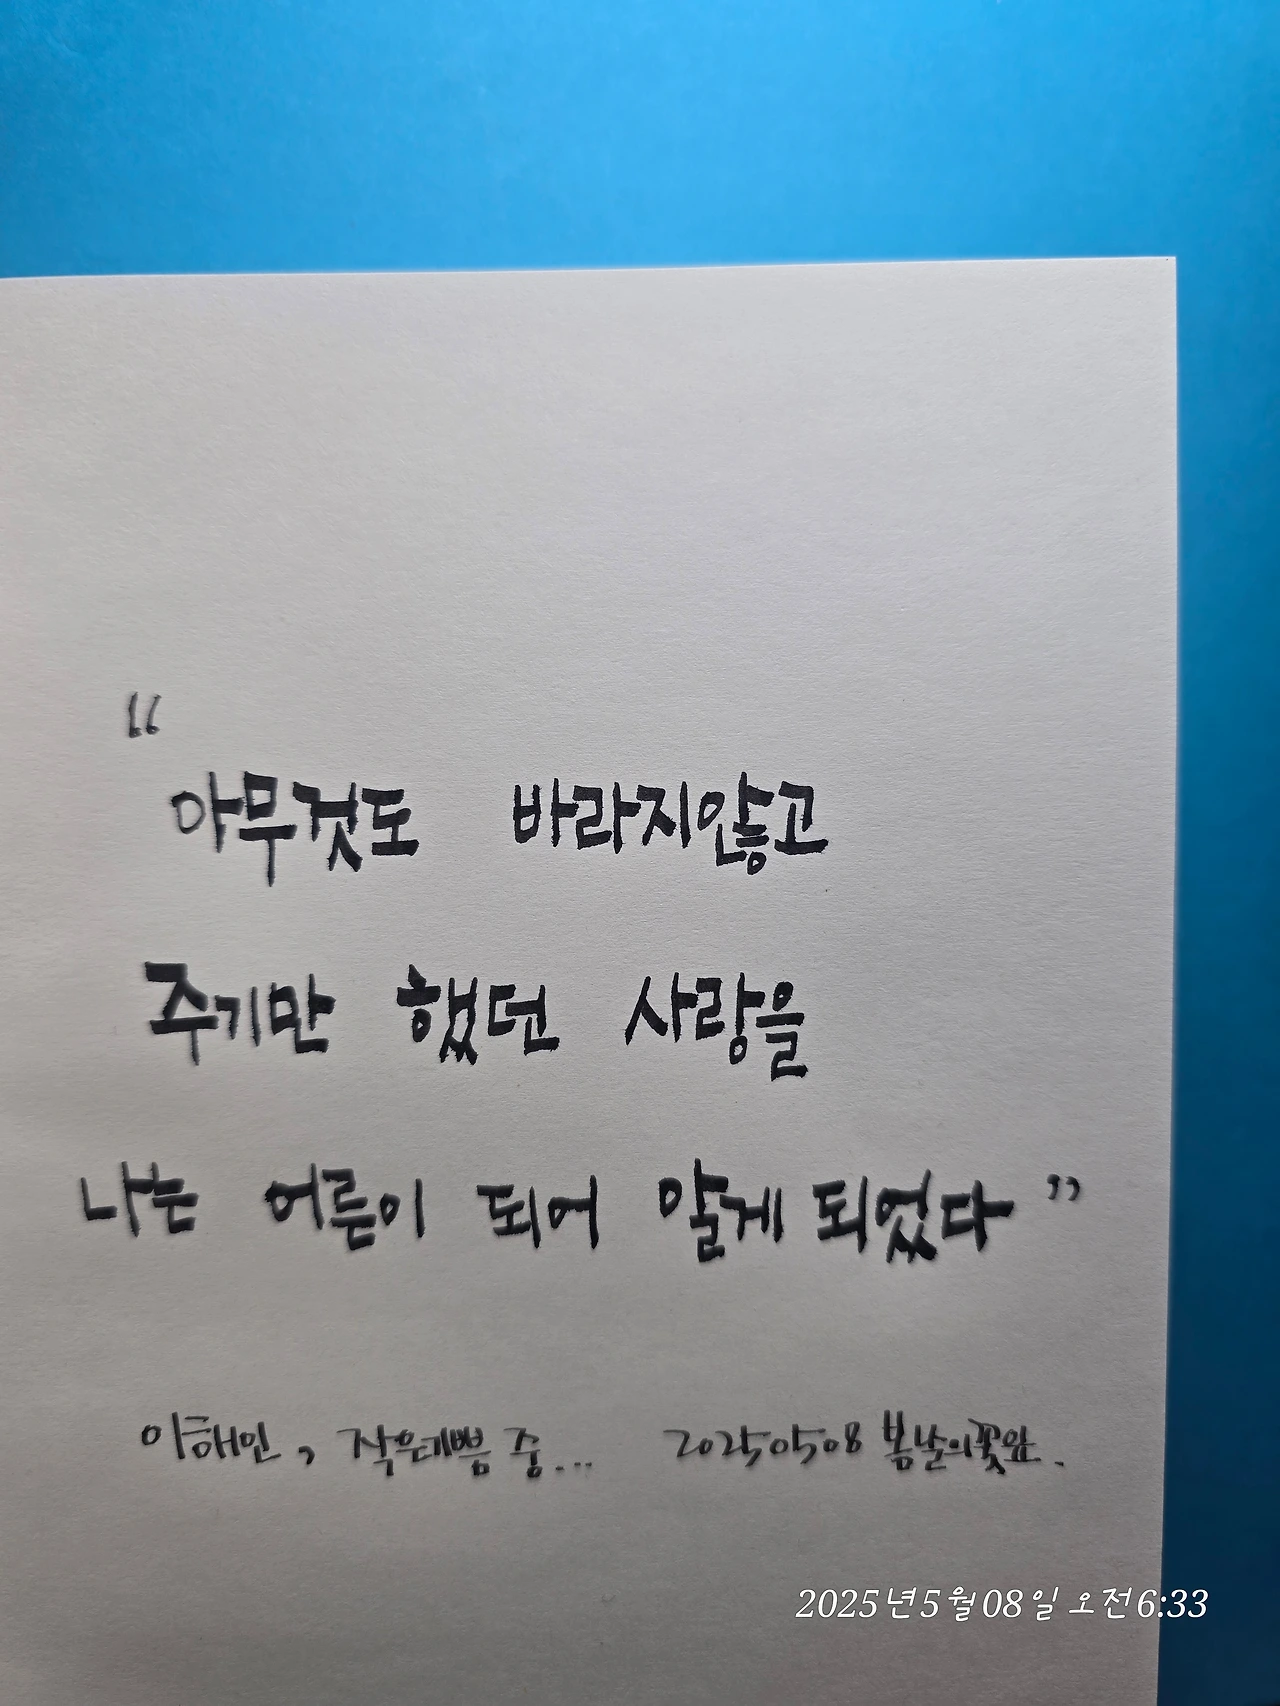 “
아무것도 바라지않고
주기만 했던 사랑을
나는 어른이 되어 알게 되었다 ”
이해인, 작은기쁨 중... 20250508 봄날의꽃잎.
2025년5월08일 오전6:33